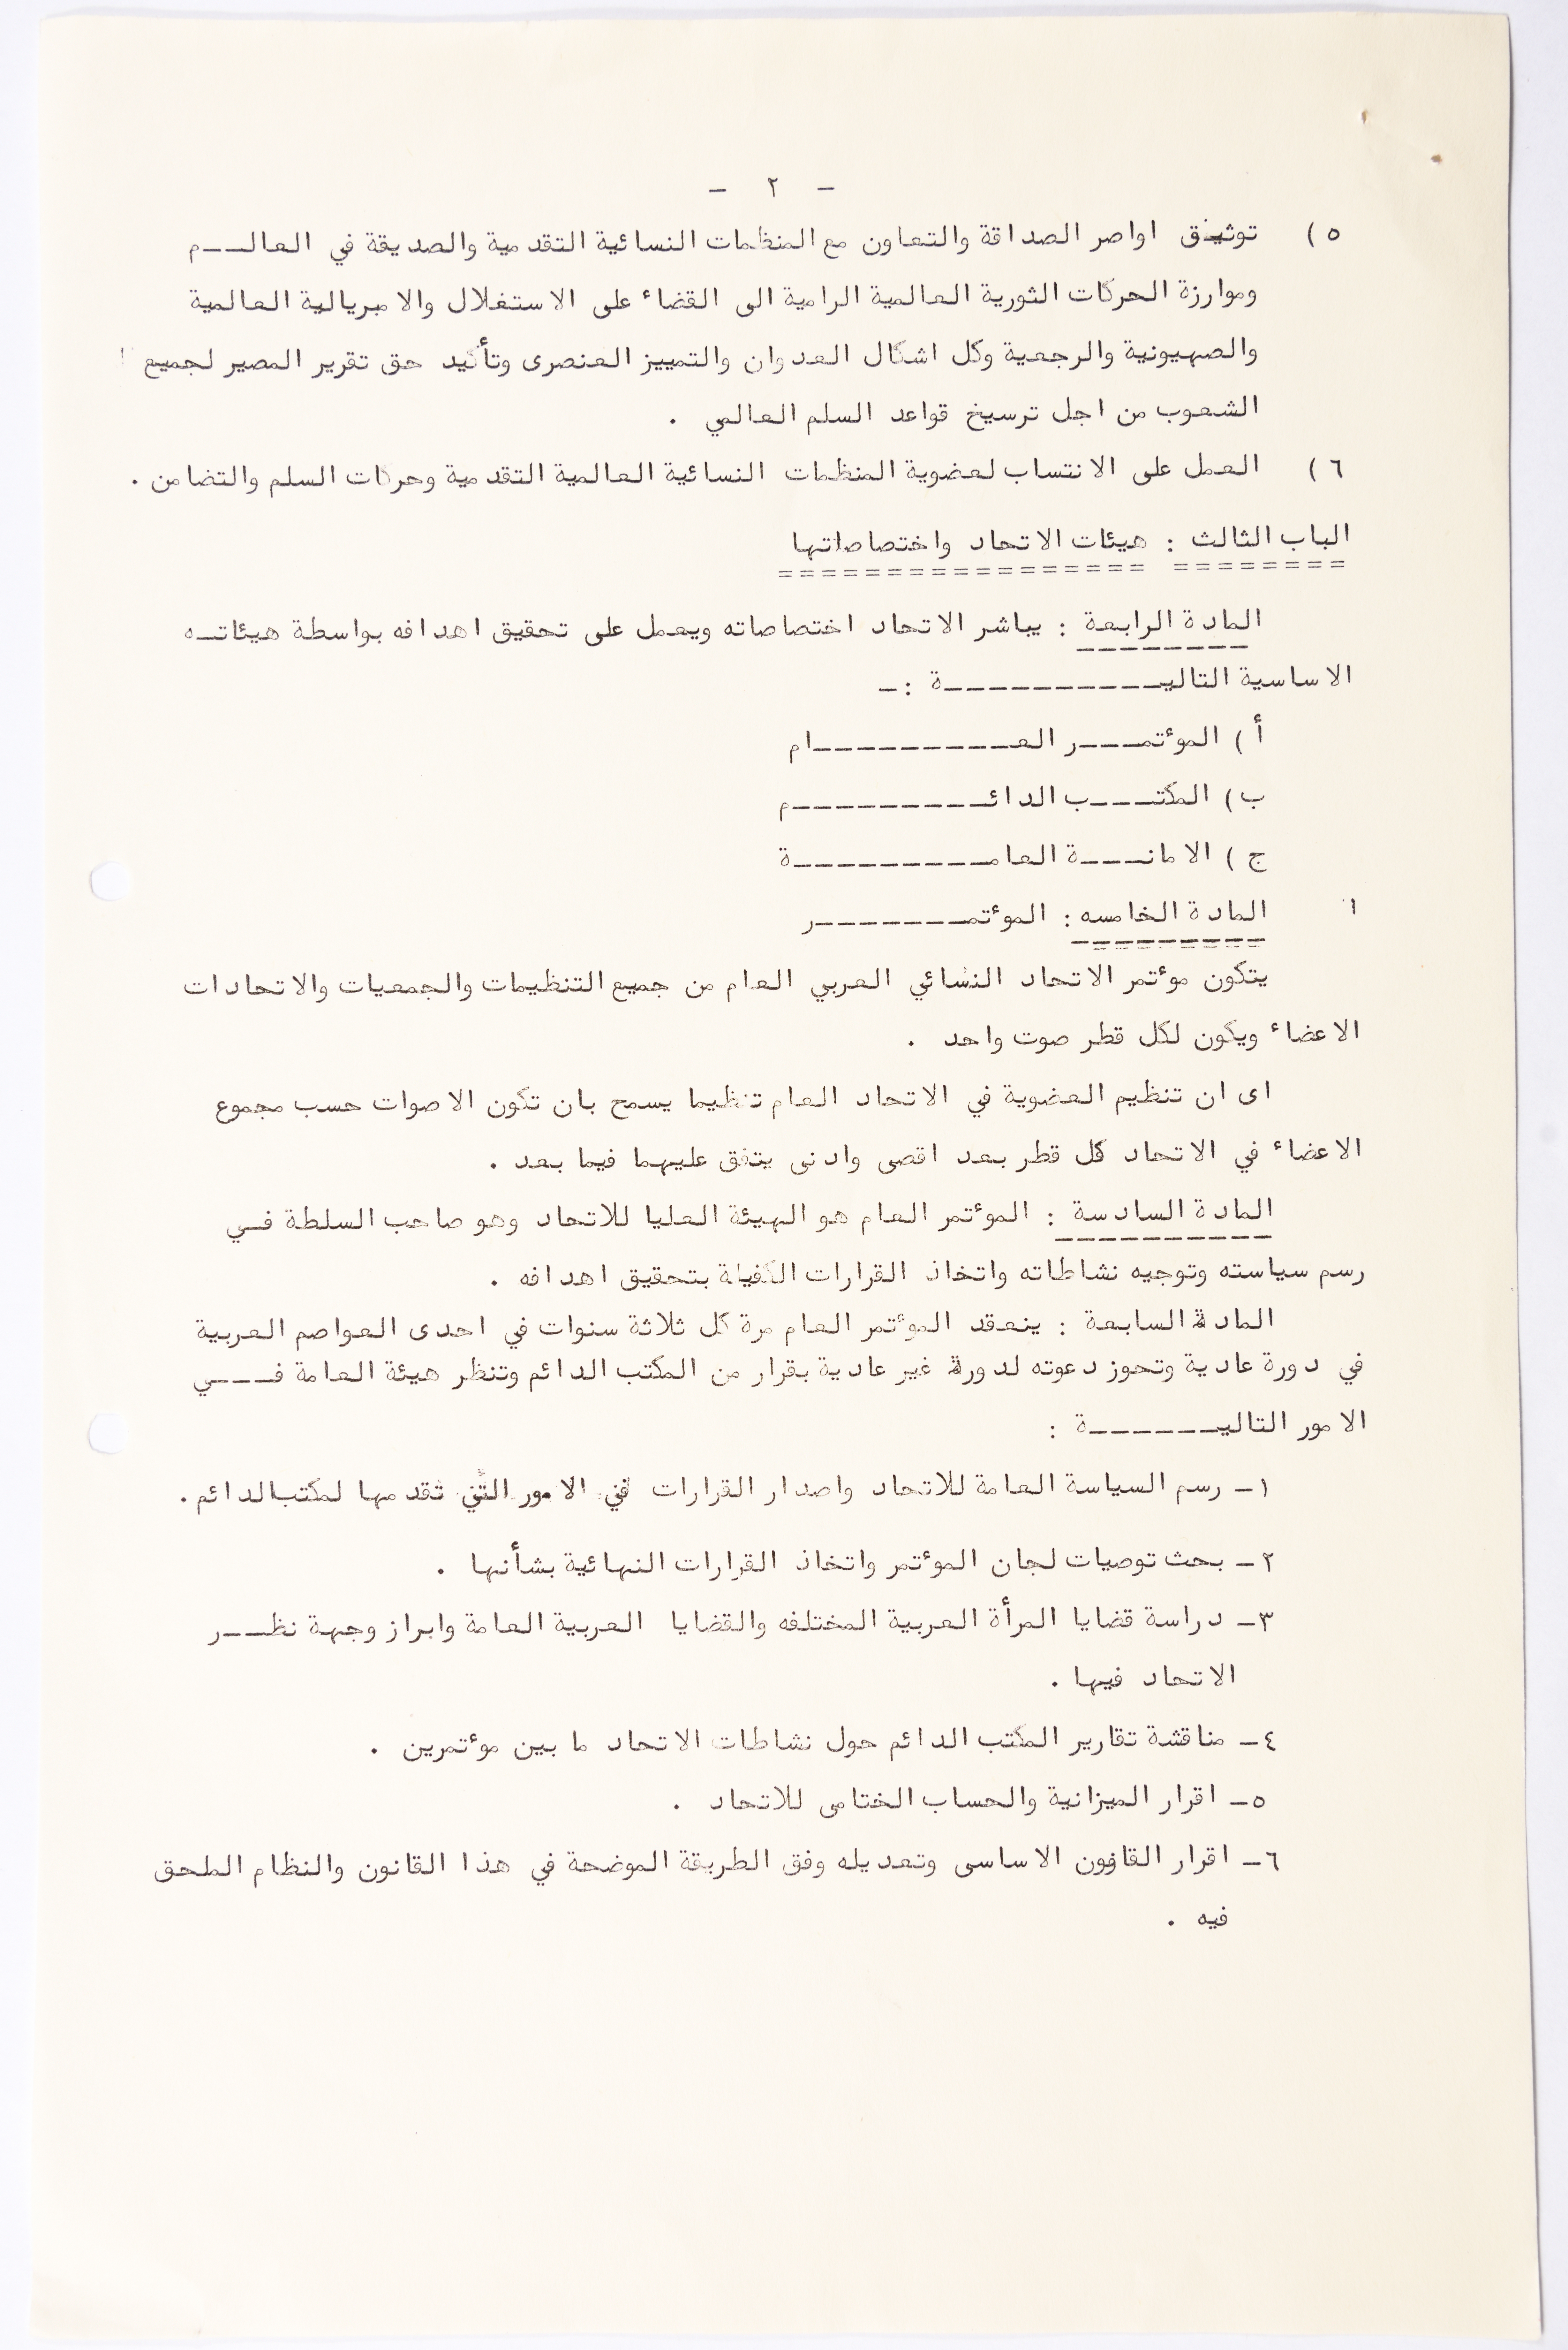 - ٢ -
٥) توثيق اواصر الصداقة والتعاون مع المنظمات النسائية التقدمية والصديقة في العالـــم
وموارزة الحركات الثورية العالمية الرامية الى القضاء على الاستغلال والامبريالية العالمية
والصهيونية والرجعية وكل اشكال العدوان والتمييز العنصرى وتأكيد حق تقرير المصير لجميع
الشعوب من اجل ترسيخ قواعد السلم العالمي .
٦) العمل على الانتساب لعضوية المنظمات النسائية العالمية التقدمية وحركات السلم والتضامن .
الباب الثالث : هيئات الاتحاد واختصاصاتها
المادة الرابعة : يباشر الاتحاد اختصاصاته ويعمل على تحقيق اهدافه بواسطة هيئاتـه
الاساسية التاليـــــــــــة :ـ
أ ) الموٴتمـــر العــــــــــام
ب) المكتـــب الدائــــــــــم
ج ) الامانـــة العامــــــــــة
المادة الخامسه : الموٴتمـــــــر
يتكون موٴتمر الاتحاد النسائي العربي العام من جميع التنظيمات والجمعيات والاتحادات
الاعضاء ويكون لكل قطر صوت واحد .
اى ان تنظيم العضوية في الاتحاد العام تنظيما يسمح بان تكون الاصوات حسب مجموع
الاعضاء في الاتحاد كل قطر بعد اقصى وادنى يتفق عليهما فيما بعد .
المادة السادسة : الموٴتمر العام هو الهيئة العليا للاتحاد وهو صاحب السلطة فـي
رسم سياسته وتوجيه نشاطاته واتخاذ القرارات الكفيلة بتحقيق اهدافه .
المادة السابعة : ينعقد الموٴتمر العام مرة كل ثلاثة سنوات في احدى العواصم العربية
في دورة عادية وتحوز دعوته لدورة غير عادية بقرار من المكتب الدائم وتنظر هيئة العامة فـــي
الامور التاليـــــــة :
١ـ رسم السياسة العامة للاتحاد واصدار القرارات في الامور التي تقدمها لمكتبالدائم .
٢ـ بحث توصيات لجان الموٴتمر واتخاذ القرارات النهائية بشأنها .
٣ـ دراسة قضايا المرأة العربية المختلفه والقضايا العربية العامة وابراز وجهة نظـــر
الاتحاد فيها .
٤ـ مناقشة تقارير المكتب الدائم حول نشاطات الاتحاد ما بين موٴتمرين .
٥ـ اقرار الميزانية والحساب الختامى للاتحاد .
٦ـ اقرار القانون الاساسى وتعديله وفق الطريقة الموضحة في هذا القانون والنظام الملحق
فيه .